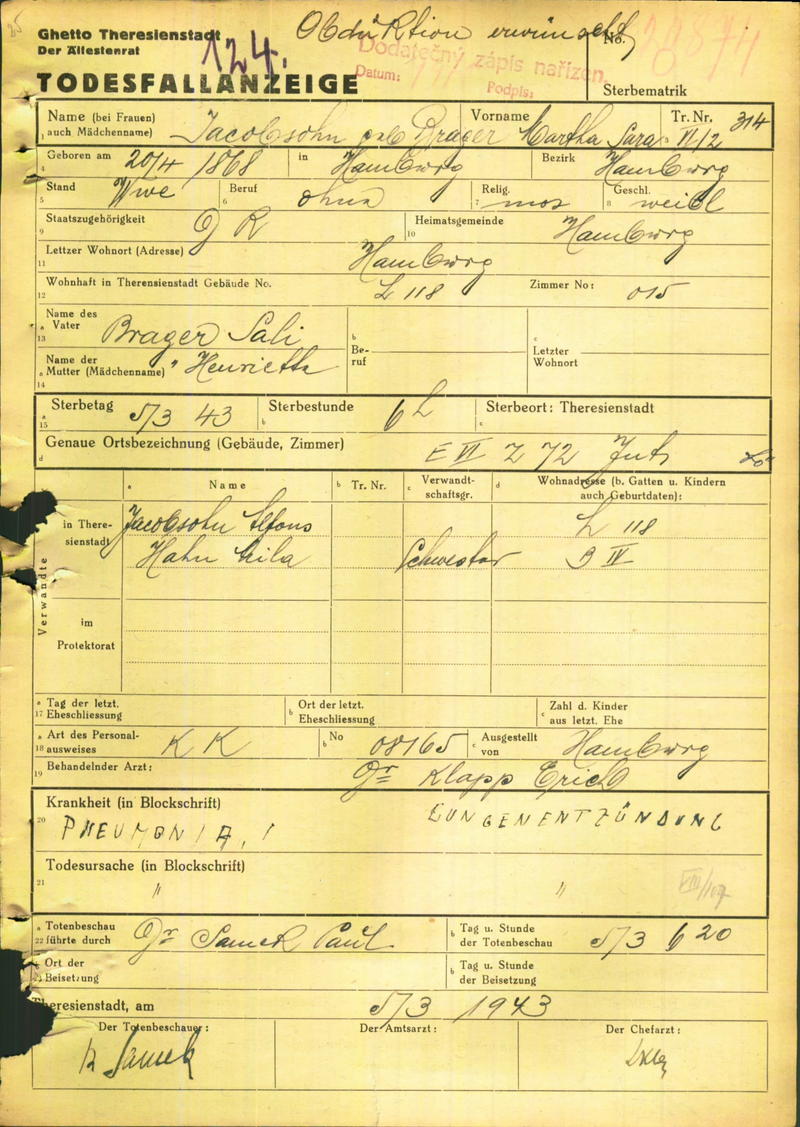 Ghetto Theresienstadt
Der Ältestenrat
124.
Obduktion erwünscht
No.
Dodatečný zápis nařízen.
Datum:
Podpis:
TODESFALLANZEIGE
Sterbematrik
Name (bei Frauen) Vorname Tr. Nr. 314
1 auch Mädchenname) Jacobsohn geb Brager Martha Sara VI/2
4 Geboren am 20/4 1868 in Hamburg Bezirk Hamburg
5 Stand Wwe 6 Beruf ohne 7 Relig. mos 8 Geschl. weibl
9 Staatszugehörigkeit D R 10 Heimatsgemeinde Hamburg
11 Lettzer Wohnort (Adresse) Hamburg
12 Wohnhaft in Therensienstadt Gebäude No. L 118 Zimmer No: 015
Name des
a Vater Brager Sali b Be- c Letzter
13 ruf Wohnort
Name der
a Mutter (Mädchenname) " Henriette
14
a Sterbetag 5/3 43 b Sterbestunde 6 h c Sterbeort: Theresienstadt
15
d Genaue Ortsbezeichnung (Gebäude, Zimmer) E VI Z 72
a Name b Tr. Nr. c Verwandt- d Wohnadresse (b. Gatten u. Kindern
schaftsgr. auch Geburtdaten):
Verwandte
in There- Jacobsohn Alfons L 118
sienstadt Hahn Schwester IV
im
Protektorat
a Tag der letzt. b Ort der letzt. c Zahl d. Kinder
17 Eheschliessung Eheschliessung aus letzt. Ehe
a Art des Personal- b No 08165 c Ausgestellt
18 ausweises K K von Hamburg
19 Behandelnder Arzt: Dr Klapp Erich
Krankheit (in Blockschrift) LUNGENENTZÜNDUNG
20 PNEUMONIA
Todesursache (in Blockschrift)
21 " "
a Totenbeschau b Tag u. Stunde
22 führte durch Dr Samek Paul der Totenbeschau 5/3 6 20
Ort der b Tag u. Stunde
Beisetzung der Beisetzung
Theresienstadt, am 5/3 1943
Der Totenbeschauer: Der Amtsarzt: Der Chefarzt:
Samek